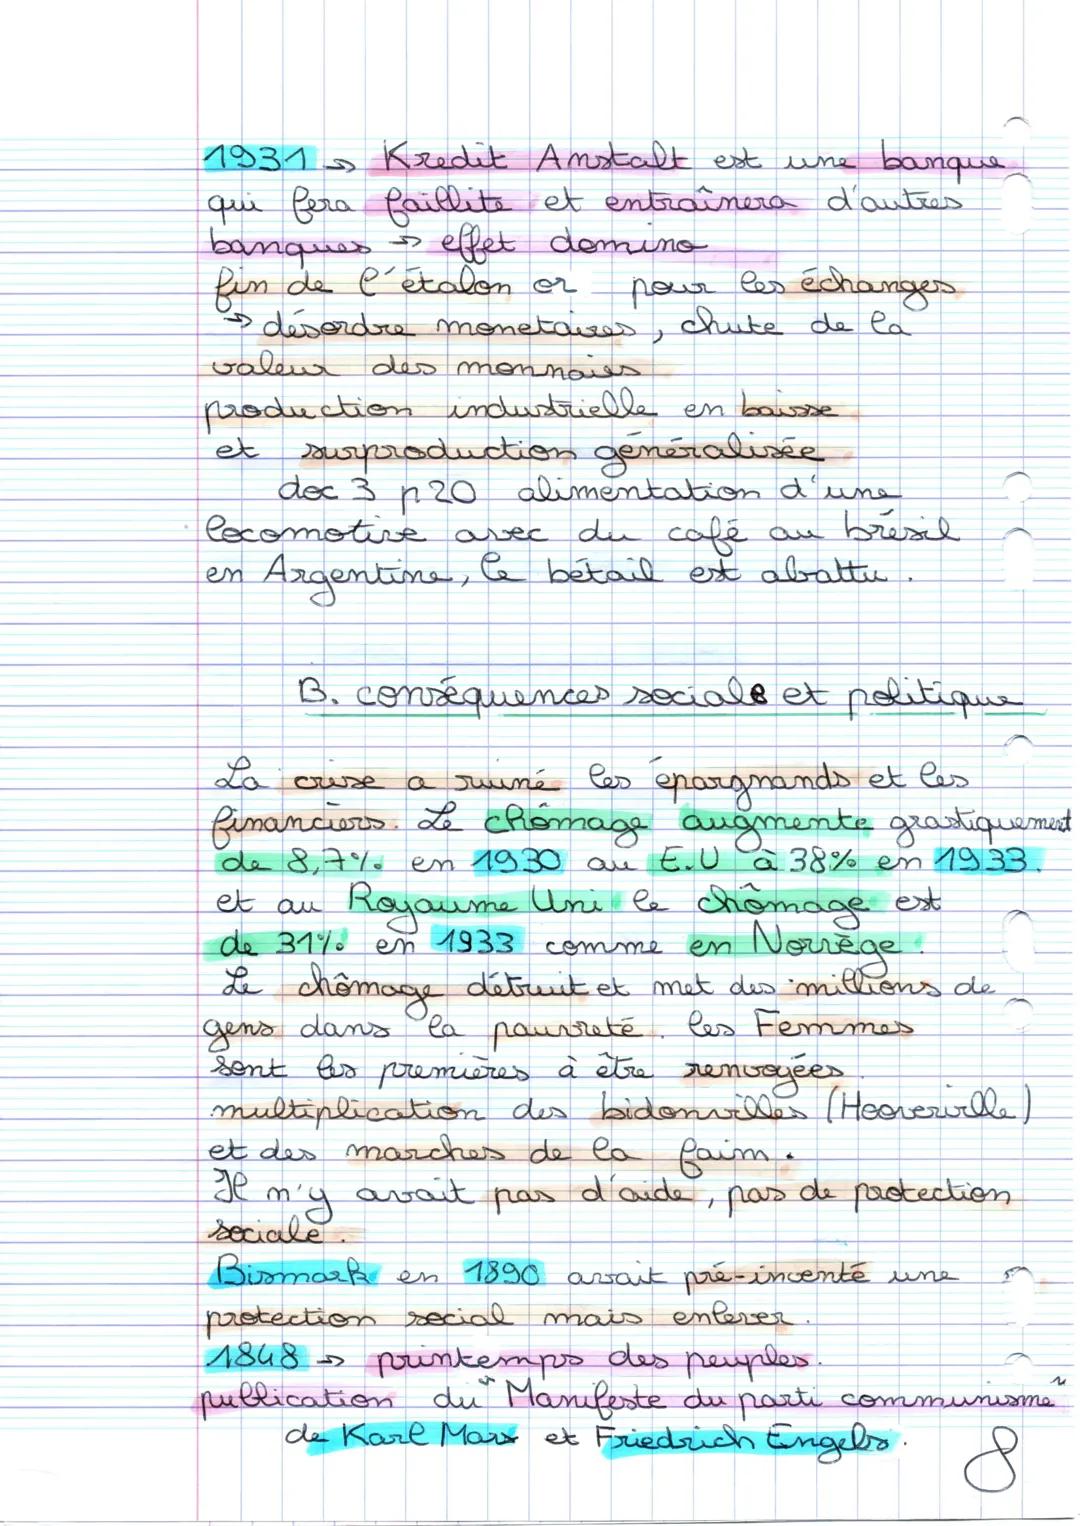 1931 → Kredit Anstalt est une banque
qui fera faillite et entraînera d'autres
banques → effet domino
fin de l'étalon or pour les échanges
→ désordre monetaires, chute de la
valeur des monnaies
production industrielle en baisse
et surproduction généralisée
doc 3 p 20 alimentation d'une
locomotive avec du café au brésil
en Argentine, le bétail est abattu.
B. conséquences sociale et politique
La crise a ruiné les épargnands et les
financiers. Le chômage augmente grastiquement
de 8,7% en 1930 au E.U à 38% en 1933.
et au Royaume Uni le chômage est
de 31% en 1933 comme en Norvège.
Le chômage détruit et met des millions de
gens dans la pauvreté. les Femmes
sont les premières à être renvoyées.
multiplication des bidonvilles (Hooverville)
et des marches de la faim.
Il n'y avait pas d'aide, pas de protection
sociale.
Bismark en 1890 avait pré-inventé une
protection social mais enlever.
1848 → printemps des peuples.
publication du "Manifeste du parti communisme"
de Karl Marx et Friedrich Engels.
8